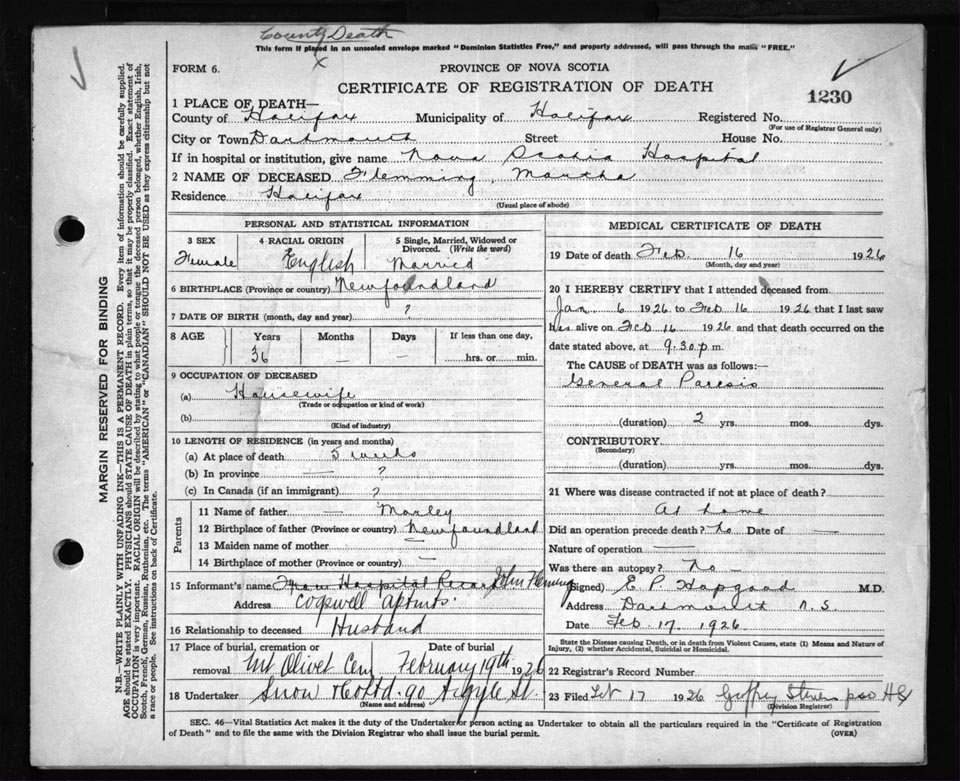 County Death
This form if placed in an unsealed envelope marked "Dominion Statistics Free," and properly addressed, will pass through the mails "FREE."
FORM 6.
PROVINCE OF NOVA SCOTIA
CERTIFICATE OF REGISTRATION OF DEATH
1230
1 PLACE OF DEATH—
County of Halifax Municipality of Halifax Registered No.
(For use of Registrar General only)
City or Town Dartmouth Street House No.
If in hospital or institution, give name Nova Scotia Hospital
2 NAME OF DECEASED Flemming, Martha
Residence Halifax
(Usual place of abode)
PERSONAL AND STATISTICAL INFORMATION
3 SEX Female
4 RACIAL ORIGIN English
5 Single, Married, Widowed or Divorced. (Write the word) Married
6 BIRTHPLACE (Province or country) Newfoundland
7 DATE OF BIRTH (month, day and year) ?
8 AGE Years Months Days If less than one day,
36 — — hrs. or min.
9 OCCUPATION OF DECEASED
(a) Housewife
(Trade or occupation or kind of work)
(b)
(Kind of industry)
10 LENGTH OF RESIDENCE (in years and months)
(a) At place of death 5 weeks
(b) In province — ?
(c) In Canada (if an immigrant) ?
Parents
11 Name of father — Morley
12 Birthplace of father (Province or country) Newfoundland
13 Maiden name of mother —
14 Birthplace of mother (Province or country) —
15 Informant's name From Hospital Record John Fleming
Address Cogswell Aptmts.
16 Relationship to deceased Husband
17 Place of burial, cremation or removal Mt Olivet Cem
Date of burial February 19th 1926
18 Undertaker Snow & Co Ltd. 90 Argyle St.
(Name and address)
MEDICAL CERTIFICATE OF DEATH
19 Date of death Feb. 16 1926
(Month, day and year)
20 I HEREBY CERTIFY that I attended deceased from
Jan 6 1926 to Feb 16 1926 that I last saw
her alive on Feb 16 1926 and that death occurred on the
date stated above, at 9.30 p.m.
The CAUSE of DEATH was as follows:—
General Paresis
(duration) 2 yrs. mos. dys.
CONTRIBUTORY
(Secondary)
(duration) yrs. mos. dys.
21 Where was disease contracted if not at place of death?
At home
Did an operation precede death? No Date of —
Nature of operation —
Was there an autopsy? No —
(Signed) E P Hapgood M.D.
Address Dartmouth N.S.
Date Feb. 17. 1926
State the Disease causing Death, or in death from Violent Causes, state (1) Means and Nature of Injury, (2) whether Accidental, Suicidal or Homicidal.
22 Registrar's Record Number
23 Filed Feb 17 1926
(Division Registrar)
SEC. 46—Vital Statistics Act makes it the duty of the Undertaker or person acting as Undertaker to obtain all the particulars required in the "Certificate of Registration
of Death" and to file the same with the Division Registrar who shall issue the burial permit.
(OVER)
MARGIN RESERVED FOR BINDING
N.B.—WRITE PLAINLY WITH UNFADING INK—THIS IS A PERMANENT RECORD. Every item of information should be carefully supplied.
AGE should be stated EXACTLY. PHYSICIANS should STATE CAUSE OF DEATH in plain terms, so that it may be properly classified. Exact statement of
OCCUPATION is very important. RACIAL ORIGIN will be described by stating to what people or tongue the deceased person belonged, whether English, Irish,
Scotch, French, German, Russian, Ruthenian, etc. The terms "AMERICAN" or "CANADIAN" SHOULD NOT BE USED as they express citizenship but not
a race or people. See instructions on back of Certificate.